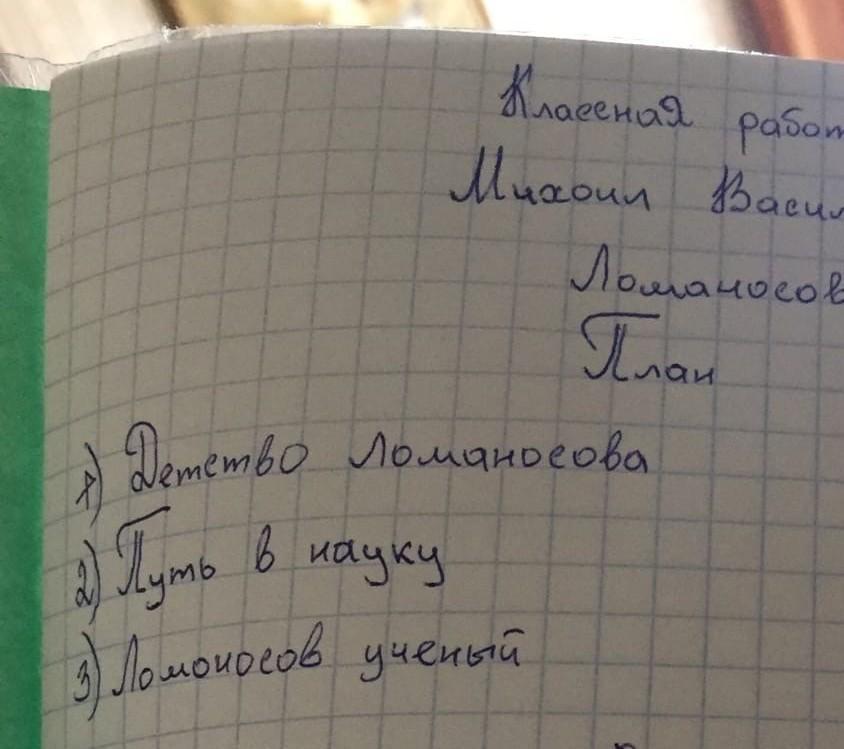 Классная работ
Михаил Васил
Ломаносов
План
1) Детство Ломаносова
2) Путь в науку
3) Ломоносов ученый